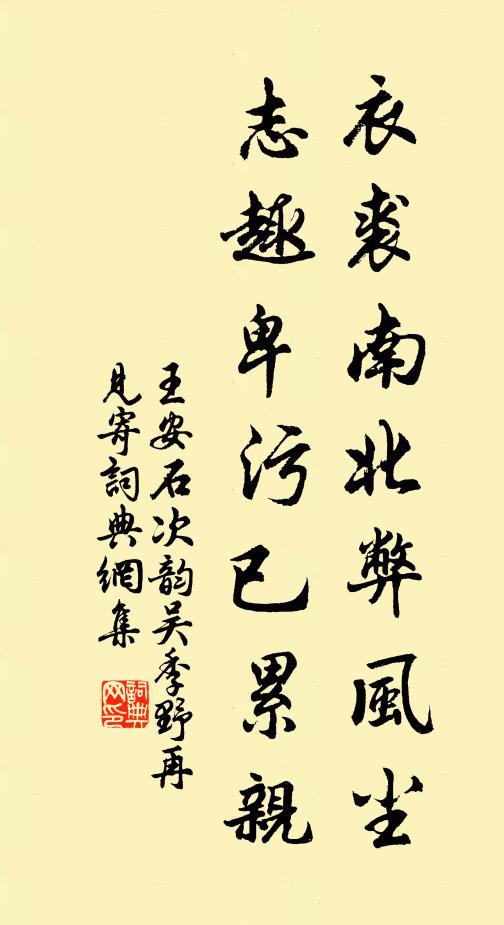 衣裘南北弊風塵
志趣卑污已累親
王安石次韵吴季野再
見寄詞典網集
詞典
网印